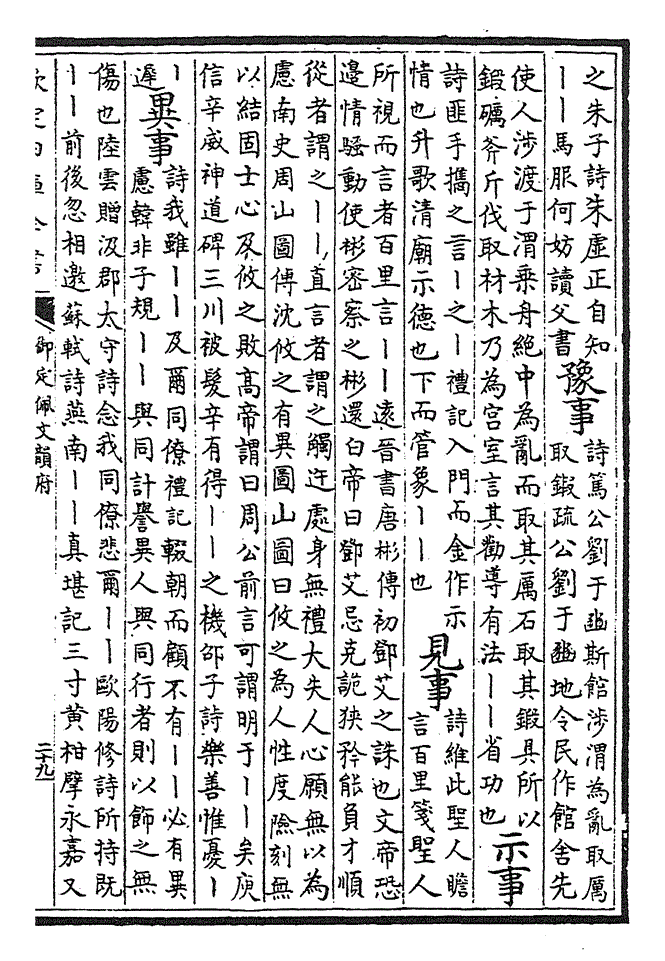 之朱子詩朱虛正自知
丨丨馬服何妨讀父書
豫事
詩篤公劉于豳斯館涉渭為亂取厲
取鍛疏公劉于豳地令民作館舍先
使人涉渡于渭乗舟絶中為亂而取其厲石取其鍛具所以
鍛礪斧斤伐取材木乃為宫室言其勸導有法丨丨省功也
示事
詩匪手攜之言丨之丨禮記入門而金作示
情也升歌清廟示德也下而管象丨丨也
見事
詩維此聖人瞻
言百里箋聖人
所視而言者百里言丨丨遠晉書唐彬傳初鄧艾之誅也文帝恐
邊情騷動使彬密察之彬還白帝曰鄧艾忌克詭狹矜能負才順
從者謂之丨丨直言者謂之觸迕處身無禮大失人心願無以為
慮南史周山圖傳沈攸之有異圖山圖曰攸之為人性度險刻無
以結固士心及攸之敗髙帝謂曰周公前言可謂明于丨丨矣庾
信辛威神道碑三川被髮辛有得丨丨之機邵子詩樂善惟憂丨
丨
遲
異事
詩我雖丨丨及爾同僚禮記輟朝而顧不有丨丨必有異
慮韓非子規丨丨與同計譽異人與同行者則以飾之無
傷也陸雲贈汲郡太守詩念我同僚悲爾丨丨歐陽修詩所持既
丨丨前後忽相邀蘇軾詩燕南丨丨真堪記三寸黄柑擘永嘉又
欽定四庫全書
御定佩文韻府
二十九